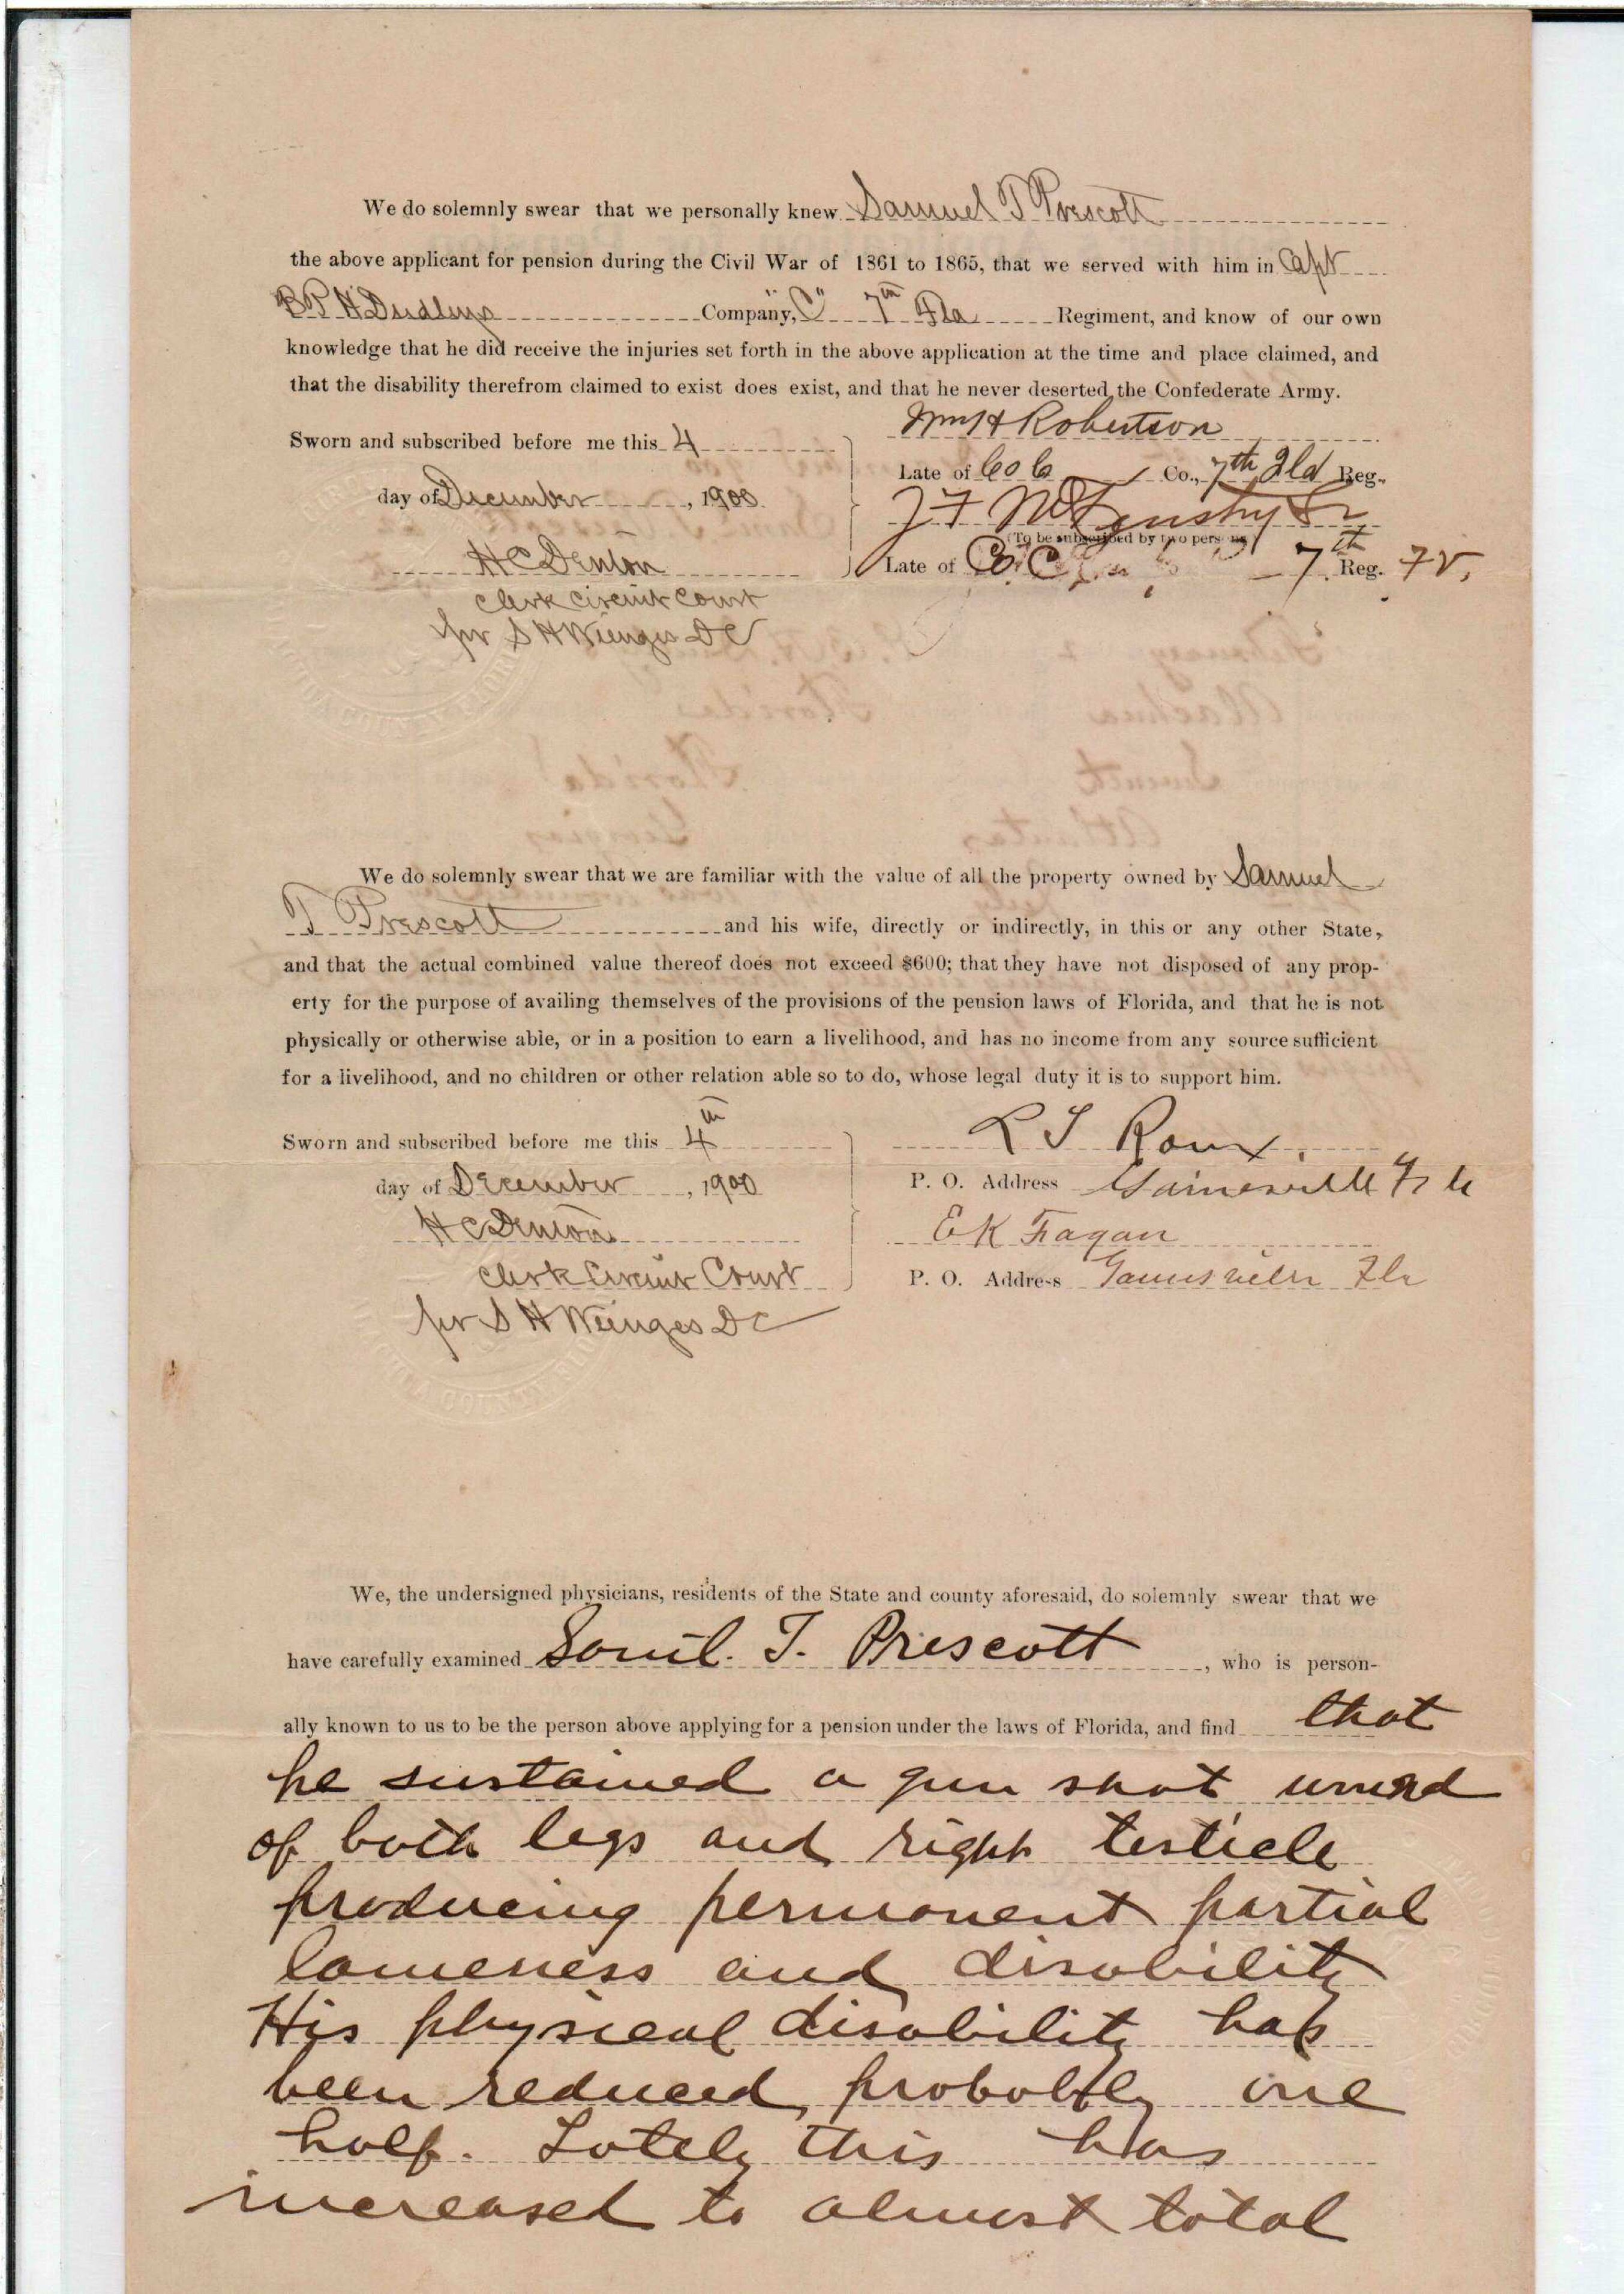 We do solemnly swear that we personally knew Samuel T Prescott
the above applicant for pension during the Civil War of 1861 to 1865, that we served with him in Capt
B P H Dudleys Company, "C" 7th Fla Regiment, and know of our own
knowledge that he did receive the injuries set forth in the above application at the time and place claimed, and
that the disability therefrom claimed to exist does exist, and that he never deserted the Confederate Army.
Wm H Robertson
Sworn and subscribed before me this 4
Late of Co C Co., 7th Fld Reg.,
day of December, 1900
J F Sr
(To be subscribed by two persons)
H C Denton
Late of Co. C 7th Reg. F V,
Clerk Circuit Court
per S H Wienges D C
We do solemnly swear that we are familiar with the value of all the property owned by Samuel
T Prescott and his wife, directly or indirectly, in this or any other State,
and that the actual combined value thereof does not exceed $600; that they have not disposed of any prop-
erty for the purpose of availing themselves of the provisions of the pension laws of Florida, and that he is not
physically or otherwise able, or in a position to earn a livelihood, and has no income from any source sufficient
for a livelihood, and no children or other relation able so to do, whose legal duty it is to support him.
Sworn and subscribed before me this 4th
L S Roux.
day of December, 1900
P. O. Address Gainesville Fla
H C Denton
E K Fagan
Clerk Circuit Court
P. O. Address Gainesville Fla
per S H Wienges D C
We, the undersigned physicians, residents of the State and county aforesaid, do solemnly swear that we
have carefully examined Saml. T. Prescott, who is person-
ally known to us to be the person above applying for a pension under the laws of Florida, and find that
he sustained a gun shot wound
of both legs and right testicle
producing permanent partial
lameness and disability
His physical disability has
been reduced probably one
half. Lately this has
increased to almost total